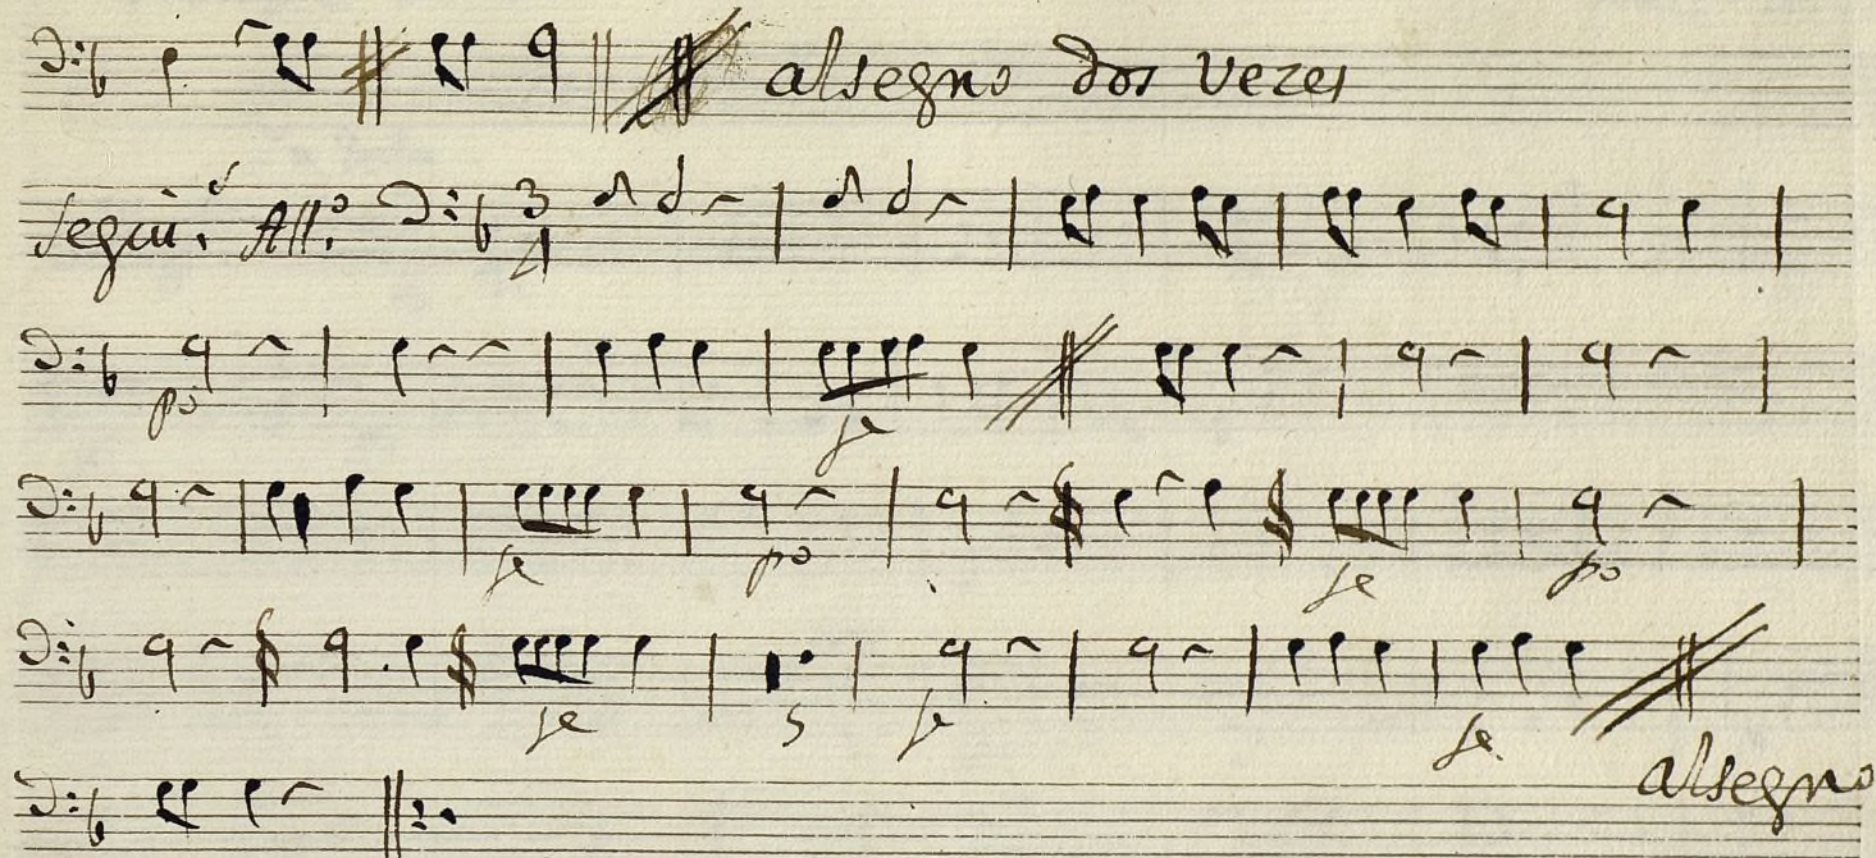 alsegno dos vezes
Segui.s All.o 3/4
po
fe
fe po fe po
fe 5 fe fe
alsegno